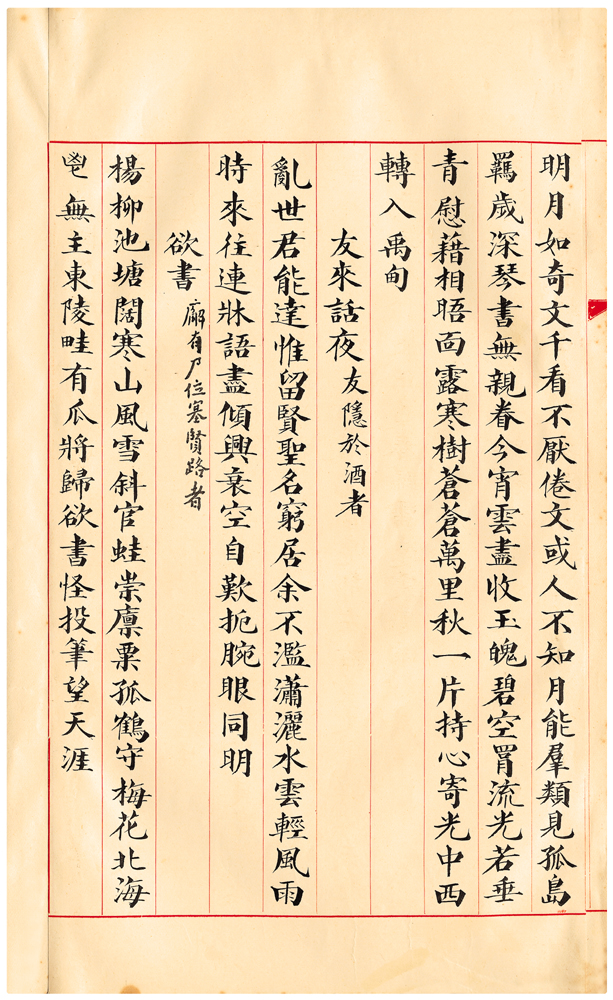 明月如奇文千看不厭倦文或人不知月能羣類見孤島
羈歲深琴書無親眷今宵雲盡收玉魄碧空罥流光若垂
青慰藉相晤面露寒樹蒼蒼萬里秋一片持心寄光中西
轉入禹甸
友來話夜友隱於酒者
亂世君能達惟留賢聖名窮居余不濫瀟灑水雲輕風雨
時來往連牀語盡傾興衰空自歎扼腕眼同明
欲書 有尸位塞賢路者
楊柳池塘闊寒山風雪斜官蛙崇廩粟孤鶴守梅花北海
無主東陵畦有瓜將歸欲書怪投筆望天涯